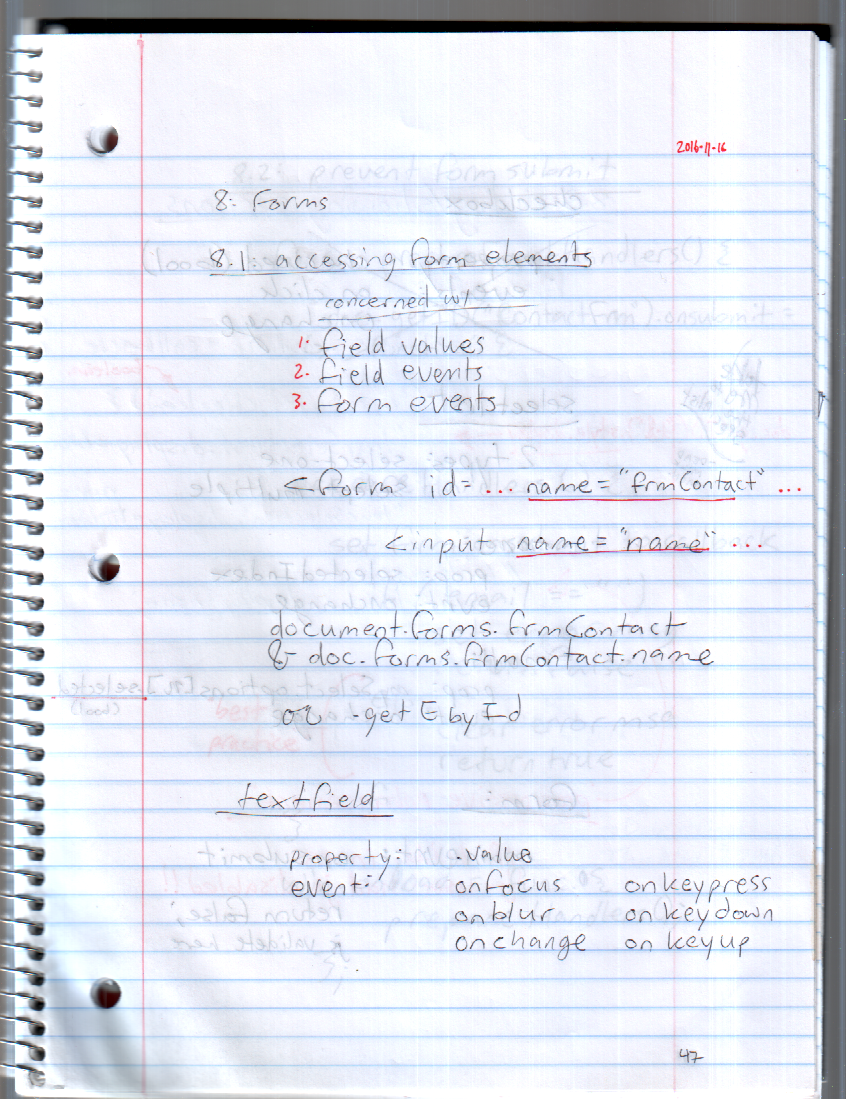 2016-11-16
8: Forms
8.1: accessing form elements
concerned w/
1. field values
2. field events
3. form events
<form id= ... name="frmContact" ...
<input name="name" ...
document.forms.frmContact
& doc.forms.frmContact.name
or - get E by Id
textfield
property: .value
event: onfocus onkeypress
onblur onkeydown
onchange onkeyup
47